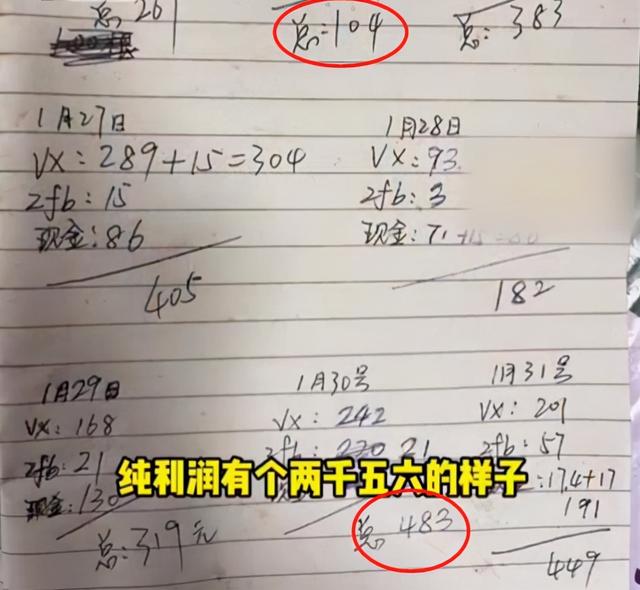 总 261
总:104
总:383
1月27日
VX:289+15=304
zfb:15
现金:86
405
1月28日
VX:93
zfb:3
现金:71+15=
182
1月29日
VX:168
zfb:21
现金:130
总:319元
1月30号
VX:242
zfb: 21
总 483
1月31号
VX:201
zfb:57
:174+17
191
449
纯利润有个两千五六的样子